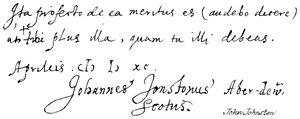 Ita profecto de ea meritus es (audebo dicere)
ut tibi plus illa, quam tu illi debeas.
Aprileis. CIƆ IƆ XC.
Johannes Jonstonus Aber-den.
Scotus.
John Johnston